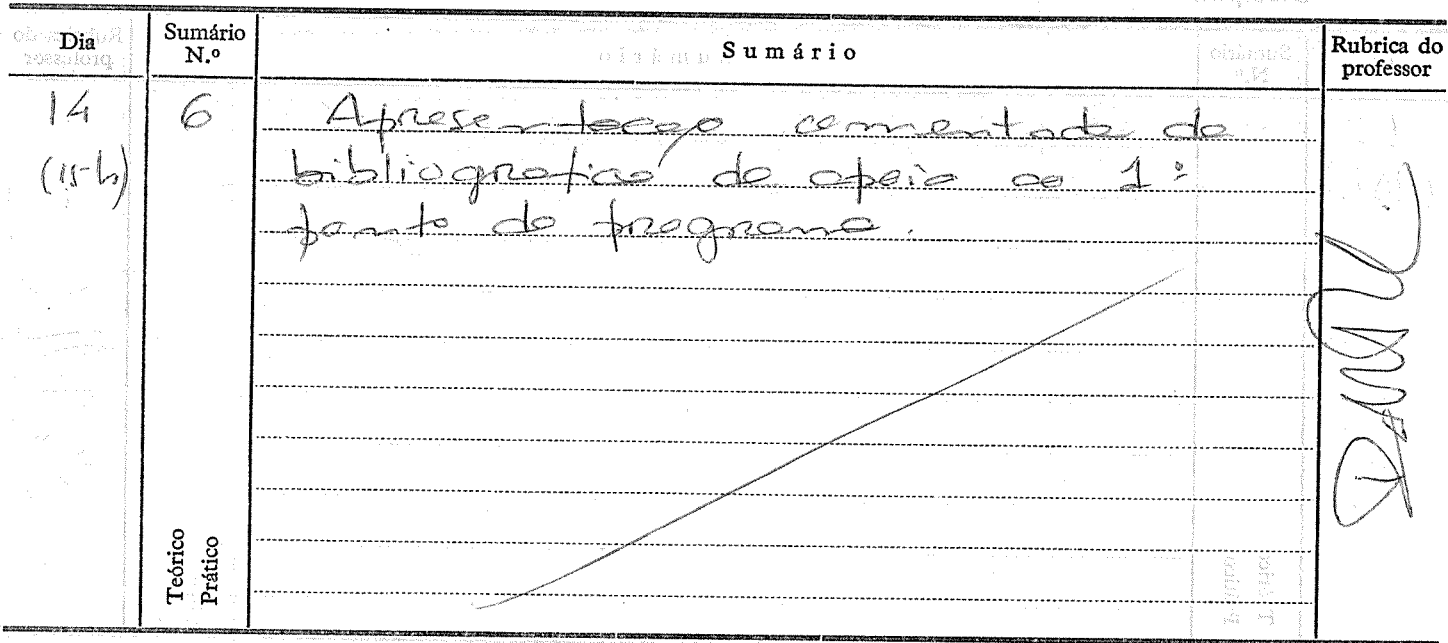 Dia
Sumário N.º
Sumário
Rubrica do professor
14
(15h)
6
Apresentação comentada da
bibliografia de apoio ao 1º
ponto do programa.
Teórico
Prático